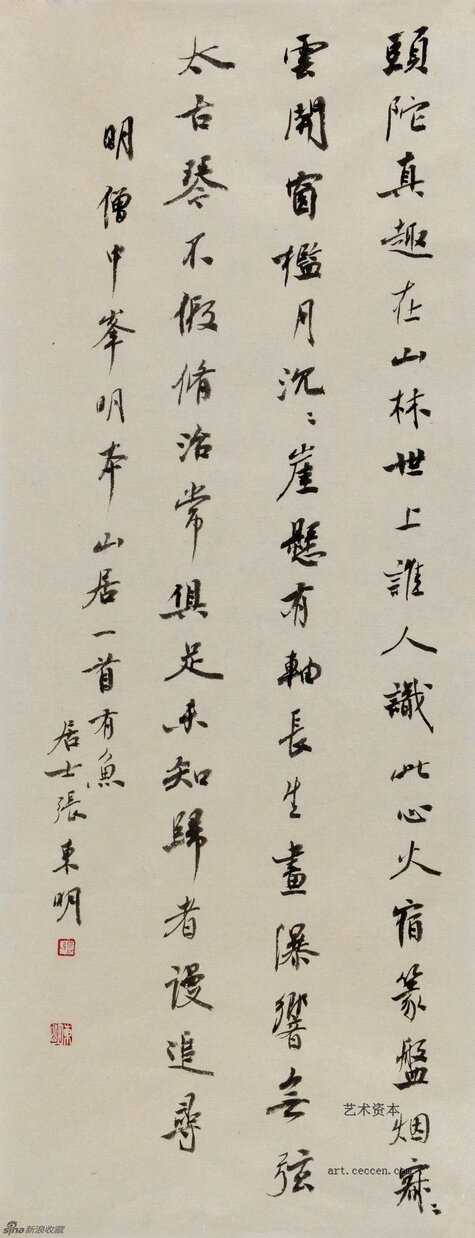 頭陀真趣在山林世上誰人識此心火宿篆盤烟寂〻
雲開窗檻月沉〻崖懸有軸長生畫瀑響無弦
太古琴不假脩治常俱足未知歸者謾追尋
明僧中峯明本山居一首有魚
居士張東明
艺术资本
art.ceccen.com
sina新浪收藏